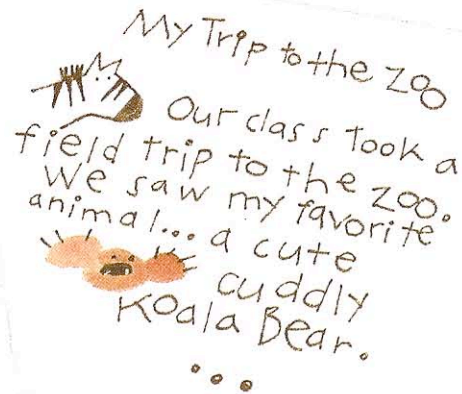 My Trip to the Zoo
Our class Took a
field trip to the zoo.
We saw my favorite
animal... a cute
cuddly
Koala Bear.
...